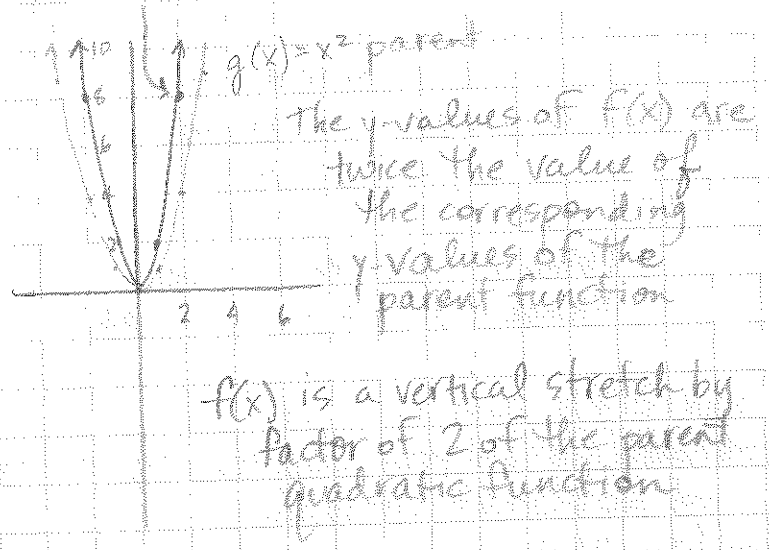 10
g(x) = x² parent
8
The y-values of f(x) are
6
twice the value of
4
the corresponding
2
y-values of the
parent function
2 4 6
f(x) is a vertical stretch by
factor of 2 of the parent
quadratic function